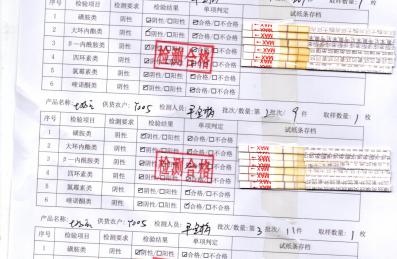 序号 检验项目 检测要求 检验结果 单项判定 试纸条存档
1 磺胺类 阴性 ☑阴性/□阳性 ☑合格/□不合格
2 大环内酯类 阴性 ☑阴性/□阳性 ☑合格/□不合格
3 β－内酰胺类 阴性 合格/□不合格
4 四环素类 阴性 合格/□不合格
5 氯霉素类 阴性 合格/□不合格
6 喹诺酮类 阴性 ☑阴性/□阳性 ☑合格/□不合格
检测合格
MAX
产品名称: 供货农户: T005 检测人员: 批次/数量:第2批次/9件 取样数量:1枚
序号 检验项目 检测要求 检验结果 单项判定 试纸条存档
1 磺胺类 阴性 ☑阴性/□阳性 ☑合格/□不合格
2 大环内酯类 阴性 ☑阴性/□阳性 ☑合格/□不合格
3 β－内酰胺类 阴性 合格/□不合格
4 四环素类 阴性 合格/□不合格
5 氯霉素类 阴性 ☑阴性/□阳性 ☑合格/□不合格
6 喹诺酮类 阴性 ☑阴性/□阳性 ☑合格/□不合格
检测合格
MAX
产品名称: 供货农户: T005 检测人员: 批次/数量:第3批次/11件 取样数量:1枚
序号 检验项目 检测要求 检验结果 单项判定 试纸条存档
1 磺胺类 阴性 ☑阴性/□阳性 ☑合格/□不合格